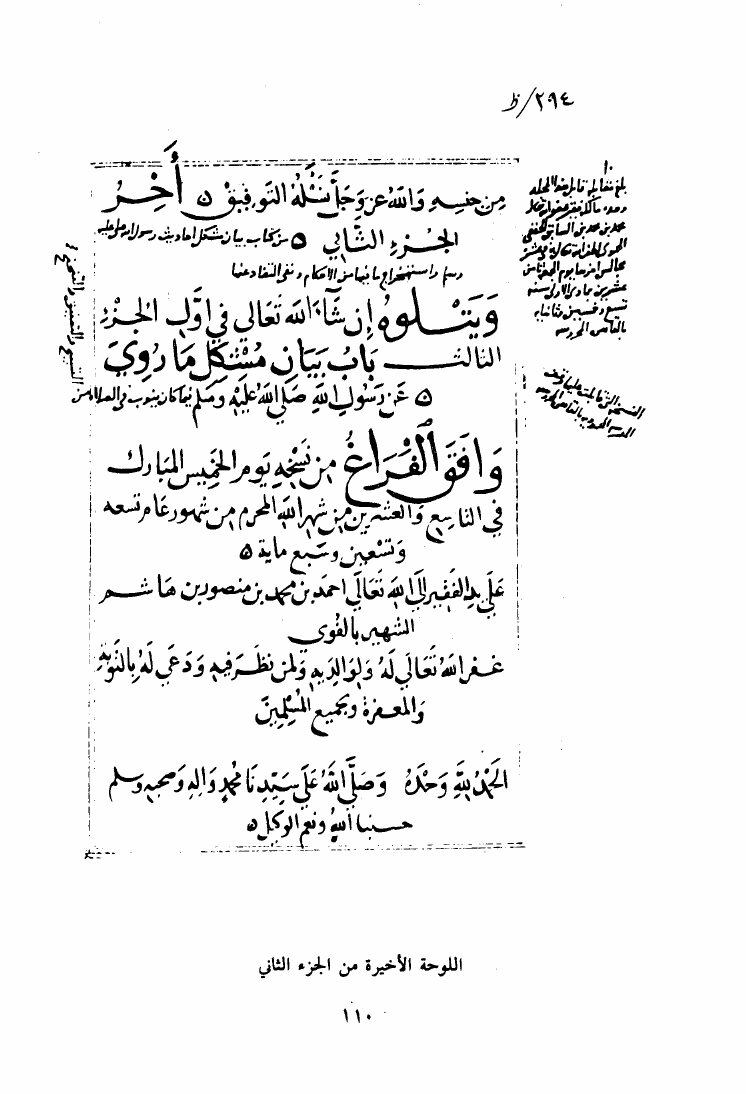 ٢٩٤/ظ
من جنسه والله عز وجل نسئله التوفيق ه أخر
الجزء الثاني ه من كتاب بيان مشكل احاديث رسول الله صلى الله عليه
وسلم واستخراج ما فيها من الاحكام ونفي التضاد عنها
ويتلوه إن شاء الله تعالى في أول الجزء
الثالث باب بيان مشكل ما روي
ه عن رسول الله صلي الله عليه وسلم فيما كان ينوب في الصلاة من
وافق الفراغ من نسخه يوم الخميس المبارك
في التاسع والعشرين من شهر الله المحرم من شهور عام تسعه
وتسعين وسبع ماية ه
علي يد الفقير إلى الله تعالي احمد بن محمد بن منصور بن هاشم
الشهير بالفوي
غفر الله تعالي له ولوالديه ولمن نظر فيه ودعي له بالتوبة
والمغفرة وبجميع المسلمين
الحمد لله وحده وصلي الله علي سيدنا محمد واله وصحبه وسلم
حسبنا الله ونعم الوكيل ه
بلغ مقابلة
اللوحة الأخيرة من الجزء الثاني
١١٠